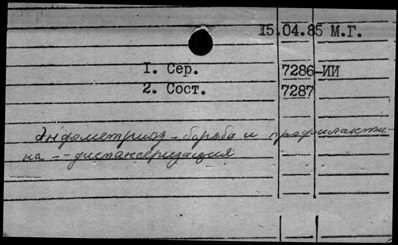 15.04.85 М.Г.
1. Сер. 7286-ИИ
2. Сост. 7287
Эндометриоз - борьба и профилакти-
ка -- диспансеризация